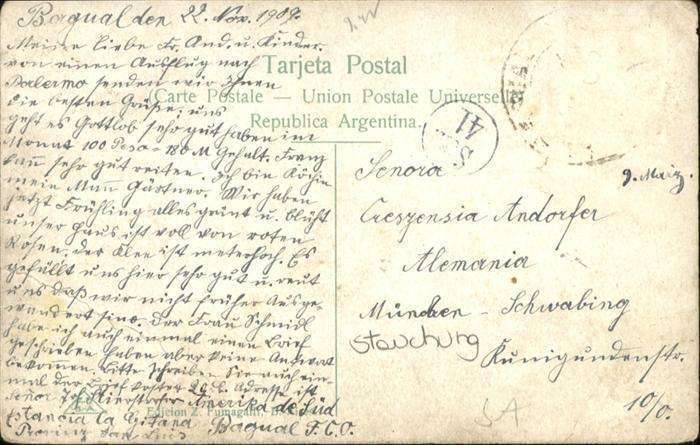 Bagual den 22. Nov. 1909.
Meine liebe Fr. And. u. Kinder.
von einen Ausflug nach
Palermo senden wir Ihnen
die besten Grüße. uns
geht es Gottlob sehr gut haben im
Monat 100 Peso = 180 M Gehalt. Franz
kan sehr gut reiten. Ich bin Köchin
mein Man Gärtner. Wir haben
jetzt Frühling alles grünt u. blüht
unser Haus ist voll von roten
Rosen. der Klee ist meterhoch. Es
gefällt uns hier sehr gut u. reut
uns daß wir nicht früher Ausge
wandert sind. Der Frau Schmidl
habe ich auch einmal einen Brief
geschrieben haben aber keine Antwort
bekommen. Bitte Schreiben Sie auch ein
mal der Brief kostet 20 Adresse ist
Señor Amerika de Süd
Estancia la Gitana Bagual F.C.O.
Provinz San Luis
Tarjeta Postal
(Carte Postale — Union Postale Universelle)
Republica Argentina.
41
Senora
9. Maiz.
Creszensia Andorfer
Alemania
München - Schwabing
Stauchung
Kunigundenstr.
10/0.
Edicion Z. Fumagalli,